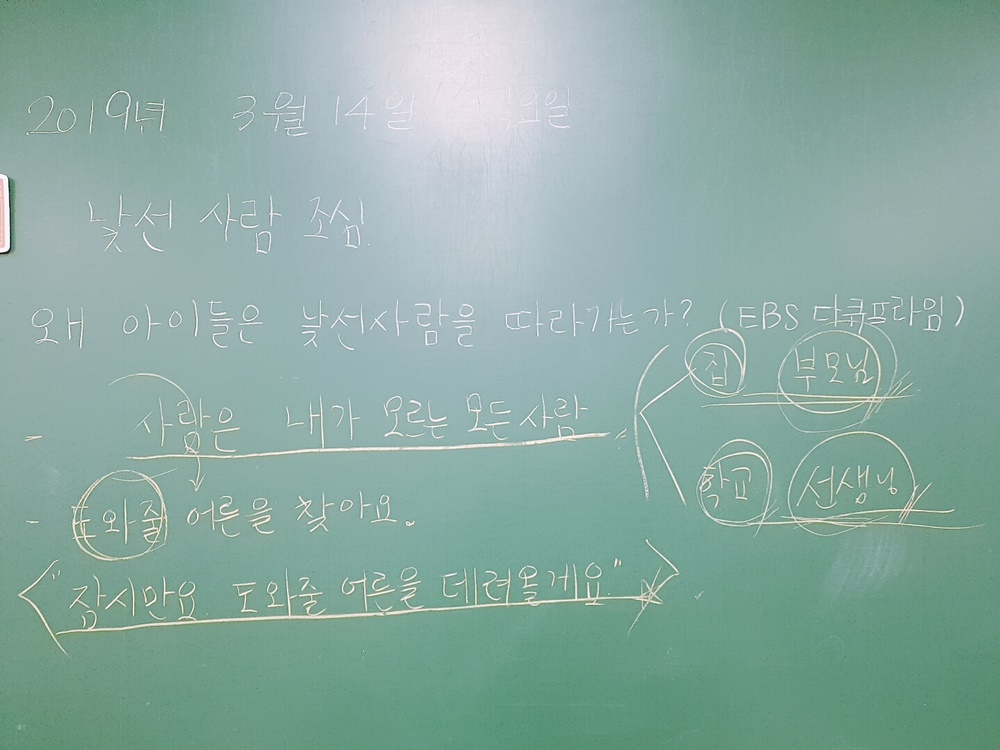 2019년 3월 14일 요일
낯선 사람 조심.
왜 아이들은 낯선사람을 따라가는가? (EBS 다큐프라임)
집 부모님
- 사람은 내가 모르는 모든 사람
학교 선생님
- 도와줄 어른을 찾아요.
"잠시만요. 도와줄 어른을 데려올게요."